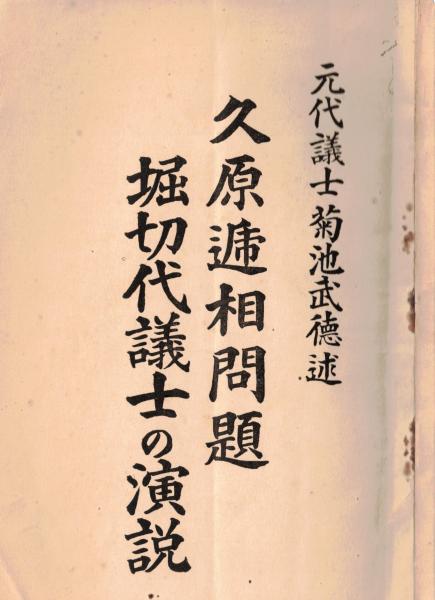 元代議士菊池武徳述
久原遞相問題
堀切代議士の演説